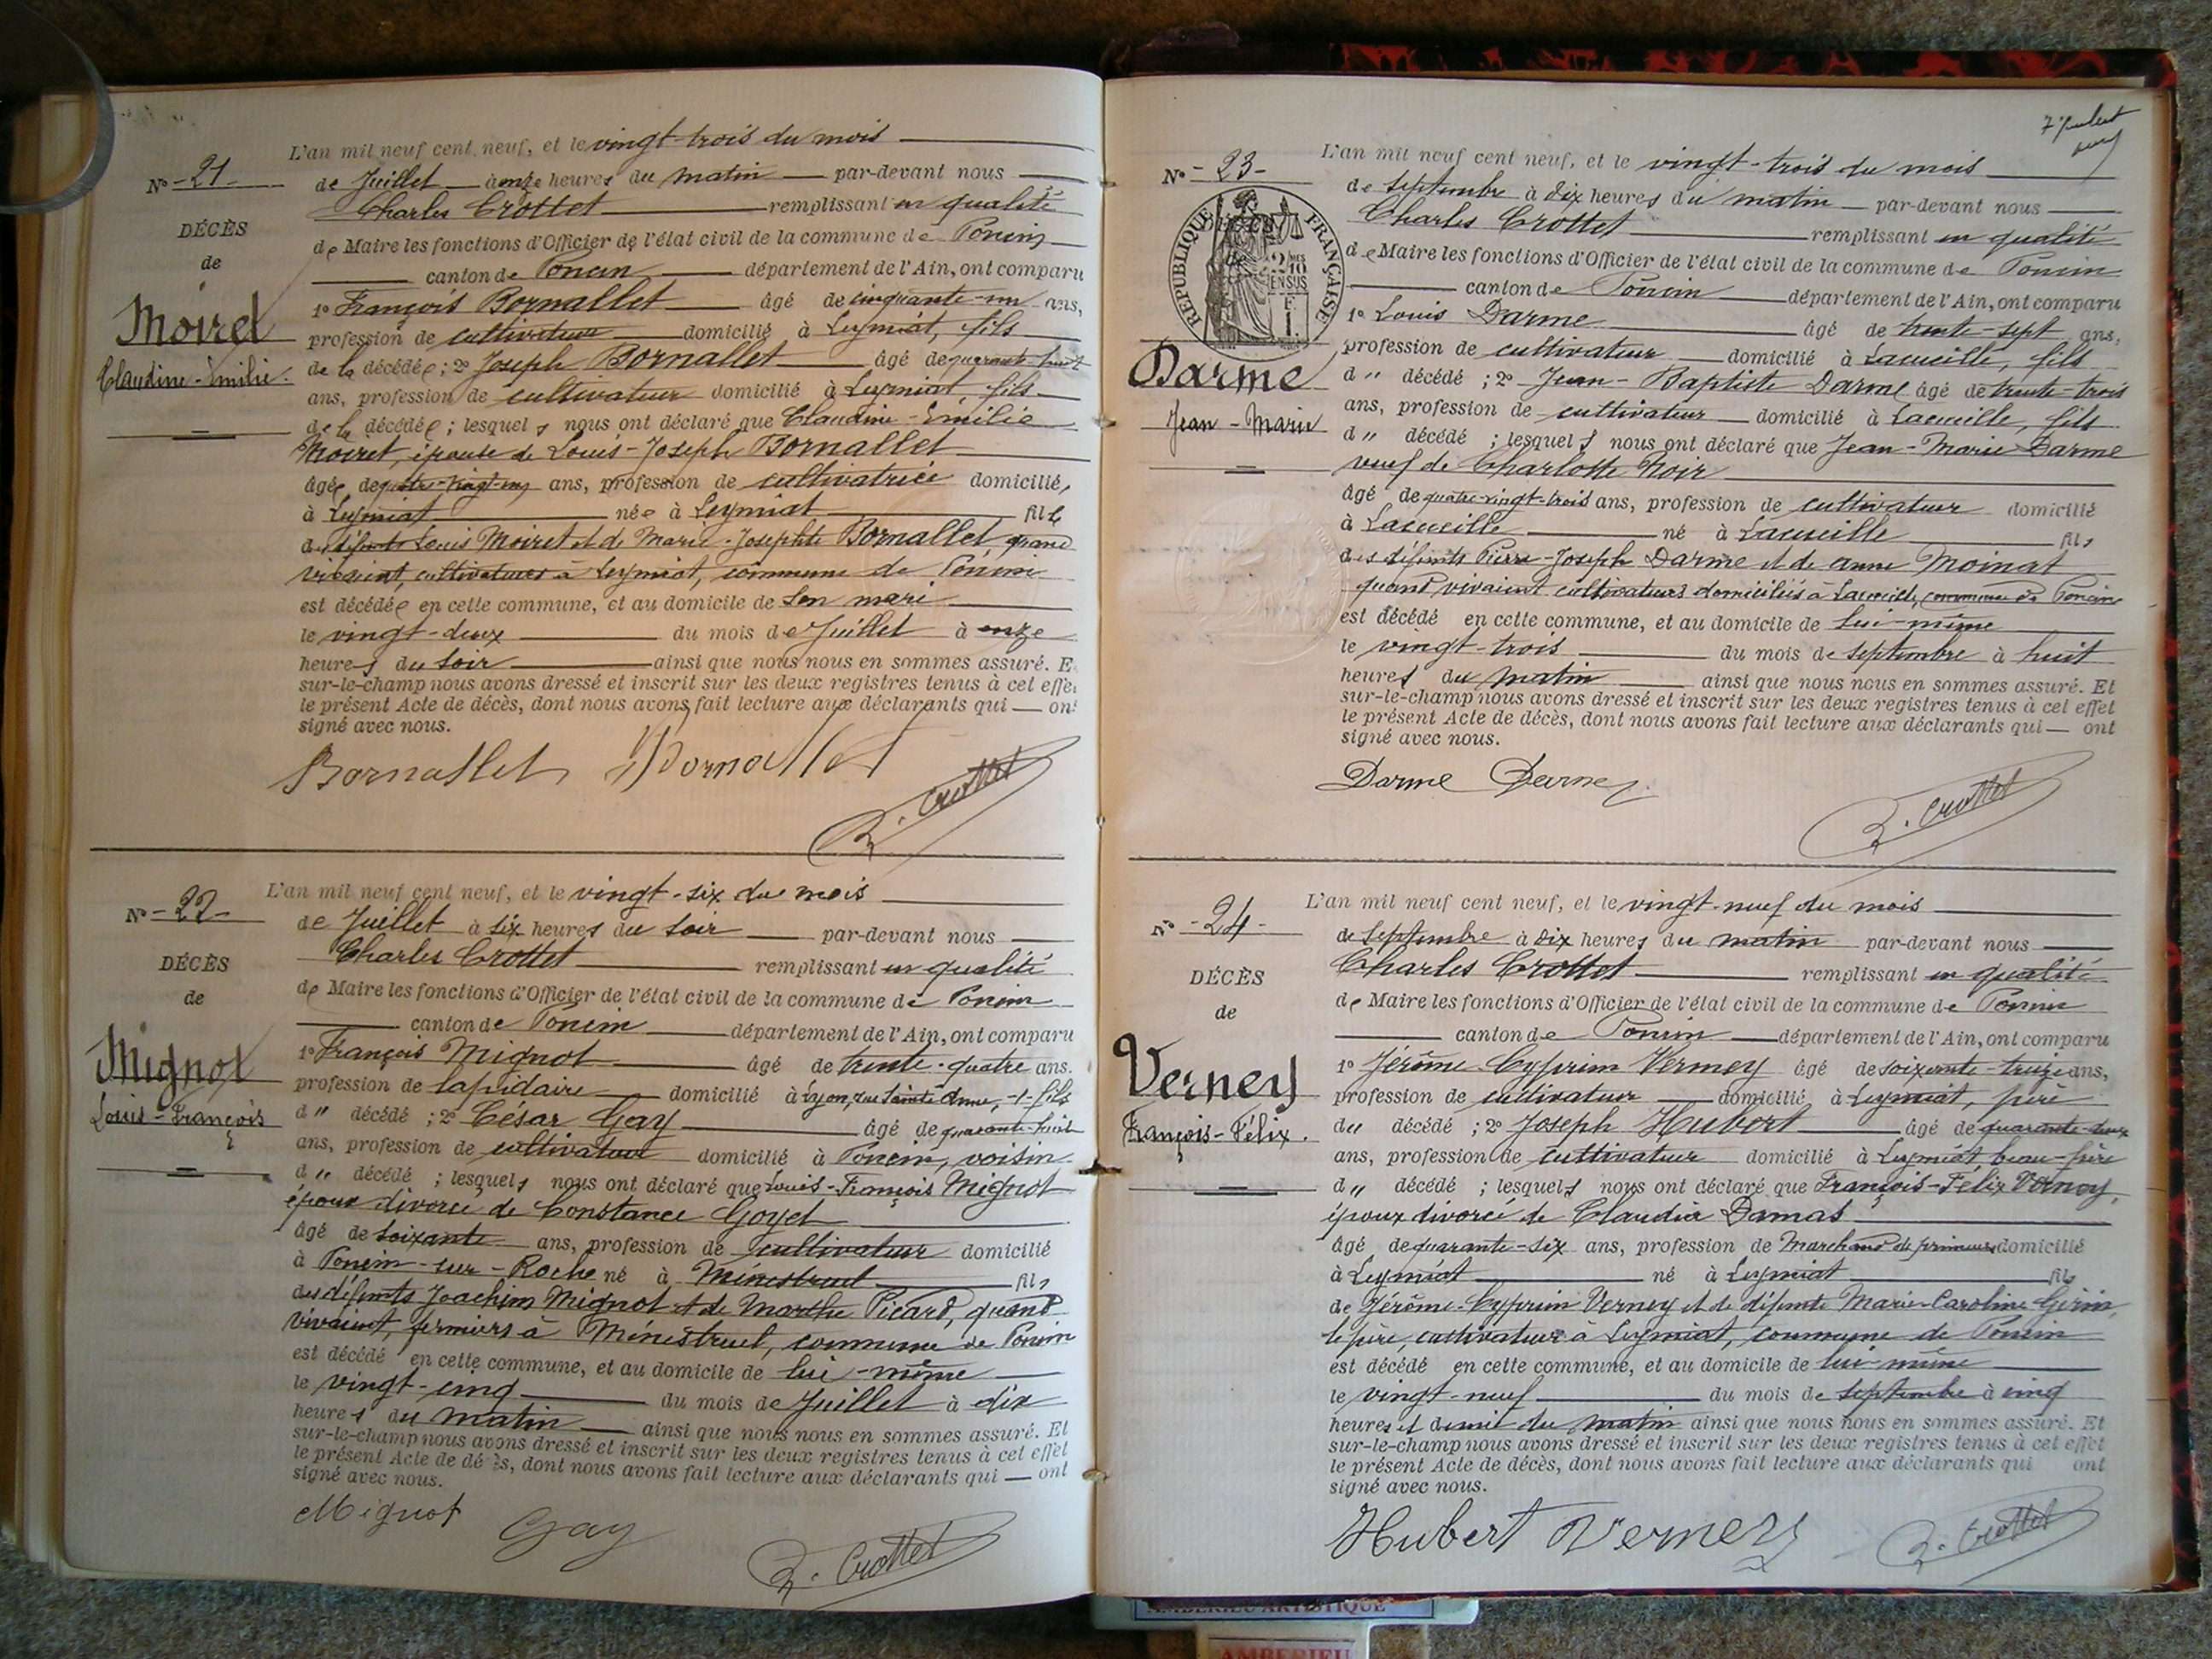 N° - 21 -
DÉCÈS
de
Moiret
Claudine-Emilie.
L'an mil neuf cent neuf, et le vingt-trois du mois
de Juillet à onze heures du matin par-devant nous
Charles Crottet remplissant en qualité
de Maire les fonctions d'Officier de l'état civil de la commune de Poncin
canton de Poncin département de l'Ain, ont comparu
1° François Bornallet âgé de cinquante-un ans,
profession de cultivateur domicilié à Leymiat, fils
de la décédée ; 2° Joseph Bornallet âgé de quarante-huit
ans, profession de cultivateur domicilié à Leymiat fils
de la décédée ; lesquels nous ont déclaré que Claudine-Emilie
Moiret, épouse de Louis-Joseph Bornallet
âgée de quatre-vingt-un ans, profession de cultivatrice domiciliée
à Leymiat née à Leymiat fille
des défunts Louis Moiret et de Marie-Josephte Bornallet quand
vivaient, cultivateurs à Leymiat, commune de Poncin
est décédée en cette commune, et au domicile de son mari
le vingt-deux du mois de Juillet à onze
heures du soir ainsi que nous nous en sommes assuré. E
sur-le-champ nous avons dressé et inscrit sur les deux registres tenus à cet effe
le présent Acte de décès, dont nous avons fait lecture aux déclarants qui ont
signé avec nous.
Bornallet Bornallet
Crottet
N° - 22 -
DÉCÈS
de
Mignot
Louis-François
L'an mil neuf cent neuf, et le vingt-six du mois
de Juillet à six heures du soir par-devant nous
Charles Crottet remplissant en qualité
de Maire les fonctions d'Officier de l'état civil de la commune de Poncin
canton de Poncin département de l'Ain, ont comparu
1° François Mignot âgé de trente-quatre ans.
profession de lapidaire domicilié à Lyon, rue Sainte Anne, -1- fils
d" décédé ; 2° César Gay âgé de quarante-huit
ans, profession de cultivateur domicilié à Poncin, voisin
d" décédé ; lesquels nous ont déclaré que Louis-François Mignot
époux divorcé de Constance Goyet
âgé de soixante ans, profession de cultivateur domicilié
à Poncin-sur-Roche né à Ménestruel fils
des défunts Joachim Mignot et de Marthe Picard, quand
vivaient, fermiers à Ménestruel, commune de Poncin
est décédé en cette commune, et au domicile de lui-même
le vingt-cinq du mois de Juillet à dix
heures du matin ainsi que nous nous en sommes assuré. Et
sur-le-champ nous avons dressé et inscrit sur les deux registres tenus à cet effet
le présent Acte de décès, dont nous avons fait lecture aux déclarants qui ont
signé avec nous.
Mignot Gay
Crottet
N° - 23 -
RÉPUBLIQUE FRANÇAISE
2/10 EN SUS
Darme
Jean-Marie
L'an mil neuf cent neuf, et le vingt-trois du mois
de septembre à dix heures du matin par-devant nous
Charles Crottet remplissant en qualité
de Maire les fonctions d'Officier de l'état civil de la commune de Poncin
canton de Poncin département de l'Ain, ont comparu
1° Louis Darme âgé de trente-sept ans,
profession de cultivateur domicilié à Lacueille, fils
d" décédé ; 2° Jean-Baptiste Darme âgé de trente-trois
ans, profession de cultivateur domicilié à Lacueille, fils
d" décédé ; lesquels nous ont déclaré que Jean-Marie Darme
veuf de Charlotte Noir
âgé de quatre-vingt-trois ans, profession de cultivateur domicilié
à Lacueille né à Lacueille fils
des défunts Pierre-Joseph Darme et de Anne Moinat
quand vivaient cultivateurs domiciliés à Lacueille, commune de Poncin
est décédé en cette commune, et au domicile de lui-même
le vingt-trois du mois de septembre à huit
heures du matin ainsi que nous nous en sommes assuré. Et
sur-le-champ nous avons dressé et inscrit sur les deux registres tenus à cet effet
le présent Acte de décès, dont nous avons fait lecture aux déclarants qui ont
signé avec nous.
Darme Darme
Crottet
N° - 24 -
DÉCÈS
de
Verney
François-Félix.
L'an mil neuf cent neuf, et le vingt-neuf du mois
de septembre à dix heures du matin par-devant nous
Charles Crottet remplissant en qualité
de Maire les fonctions d'Officier de l'état civil de la commune de Poncin
canton de Poncin département de l'Ain, ont comparu
1° Jérôme-Cyprien Verney âgé de soixante-treize ans,
profession de cultivateur domicilié à Leymiat, père
du décédé ; 2° Joseph Hubert âgé de quarante-deux
ans, profession de cultivateur domicilié à Leymiat beau-frère
d" décédé ; lesquels nous ont déclaré que François-Félix Verney,
époux divorcé de Claudia Damas
âgé de quarante-six ans, profession de Marchand de primeurs domicilié
à Leymiat né à Leymiat fils
de Jérôme-Cyprien Verney et de défunte Marie-Caroline Girin,
le père, cultivateur à Leymiat, commune de Poncin
est décédé en cette commune, et au domicile de lui-même
le vingt-neuf du mois de septembre à cinq
heures et demie du matin ainsi que nous nous en sommes assuré. Et
sur-le-champ nous avons dressé et inscrit sur les deux registres tenus à cet effet
le présent Acte de décès, dont nous avons fait lecture aux déclarants qui ont
signé avec nous.
Hubert Verney
Crottet
AMBERIEU ARTISTIQUE
AMBERIEU